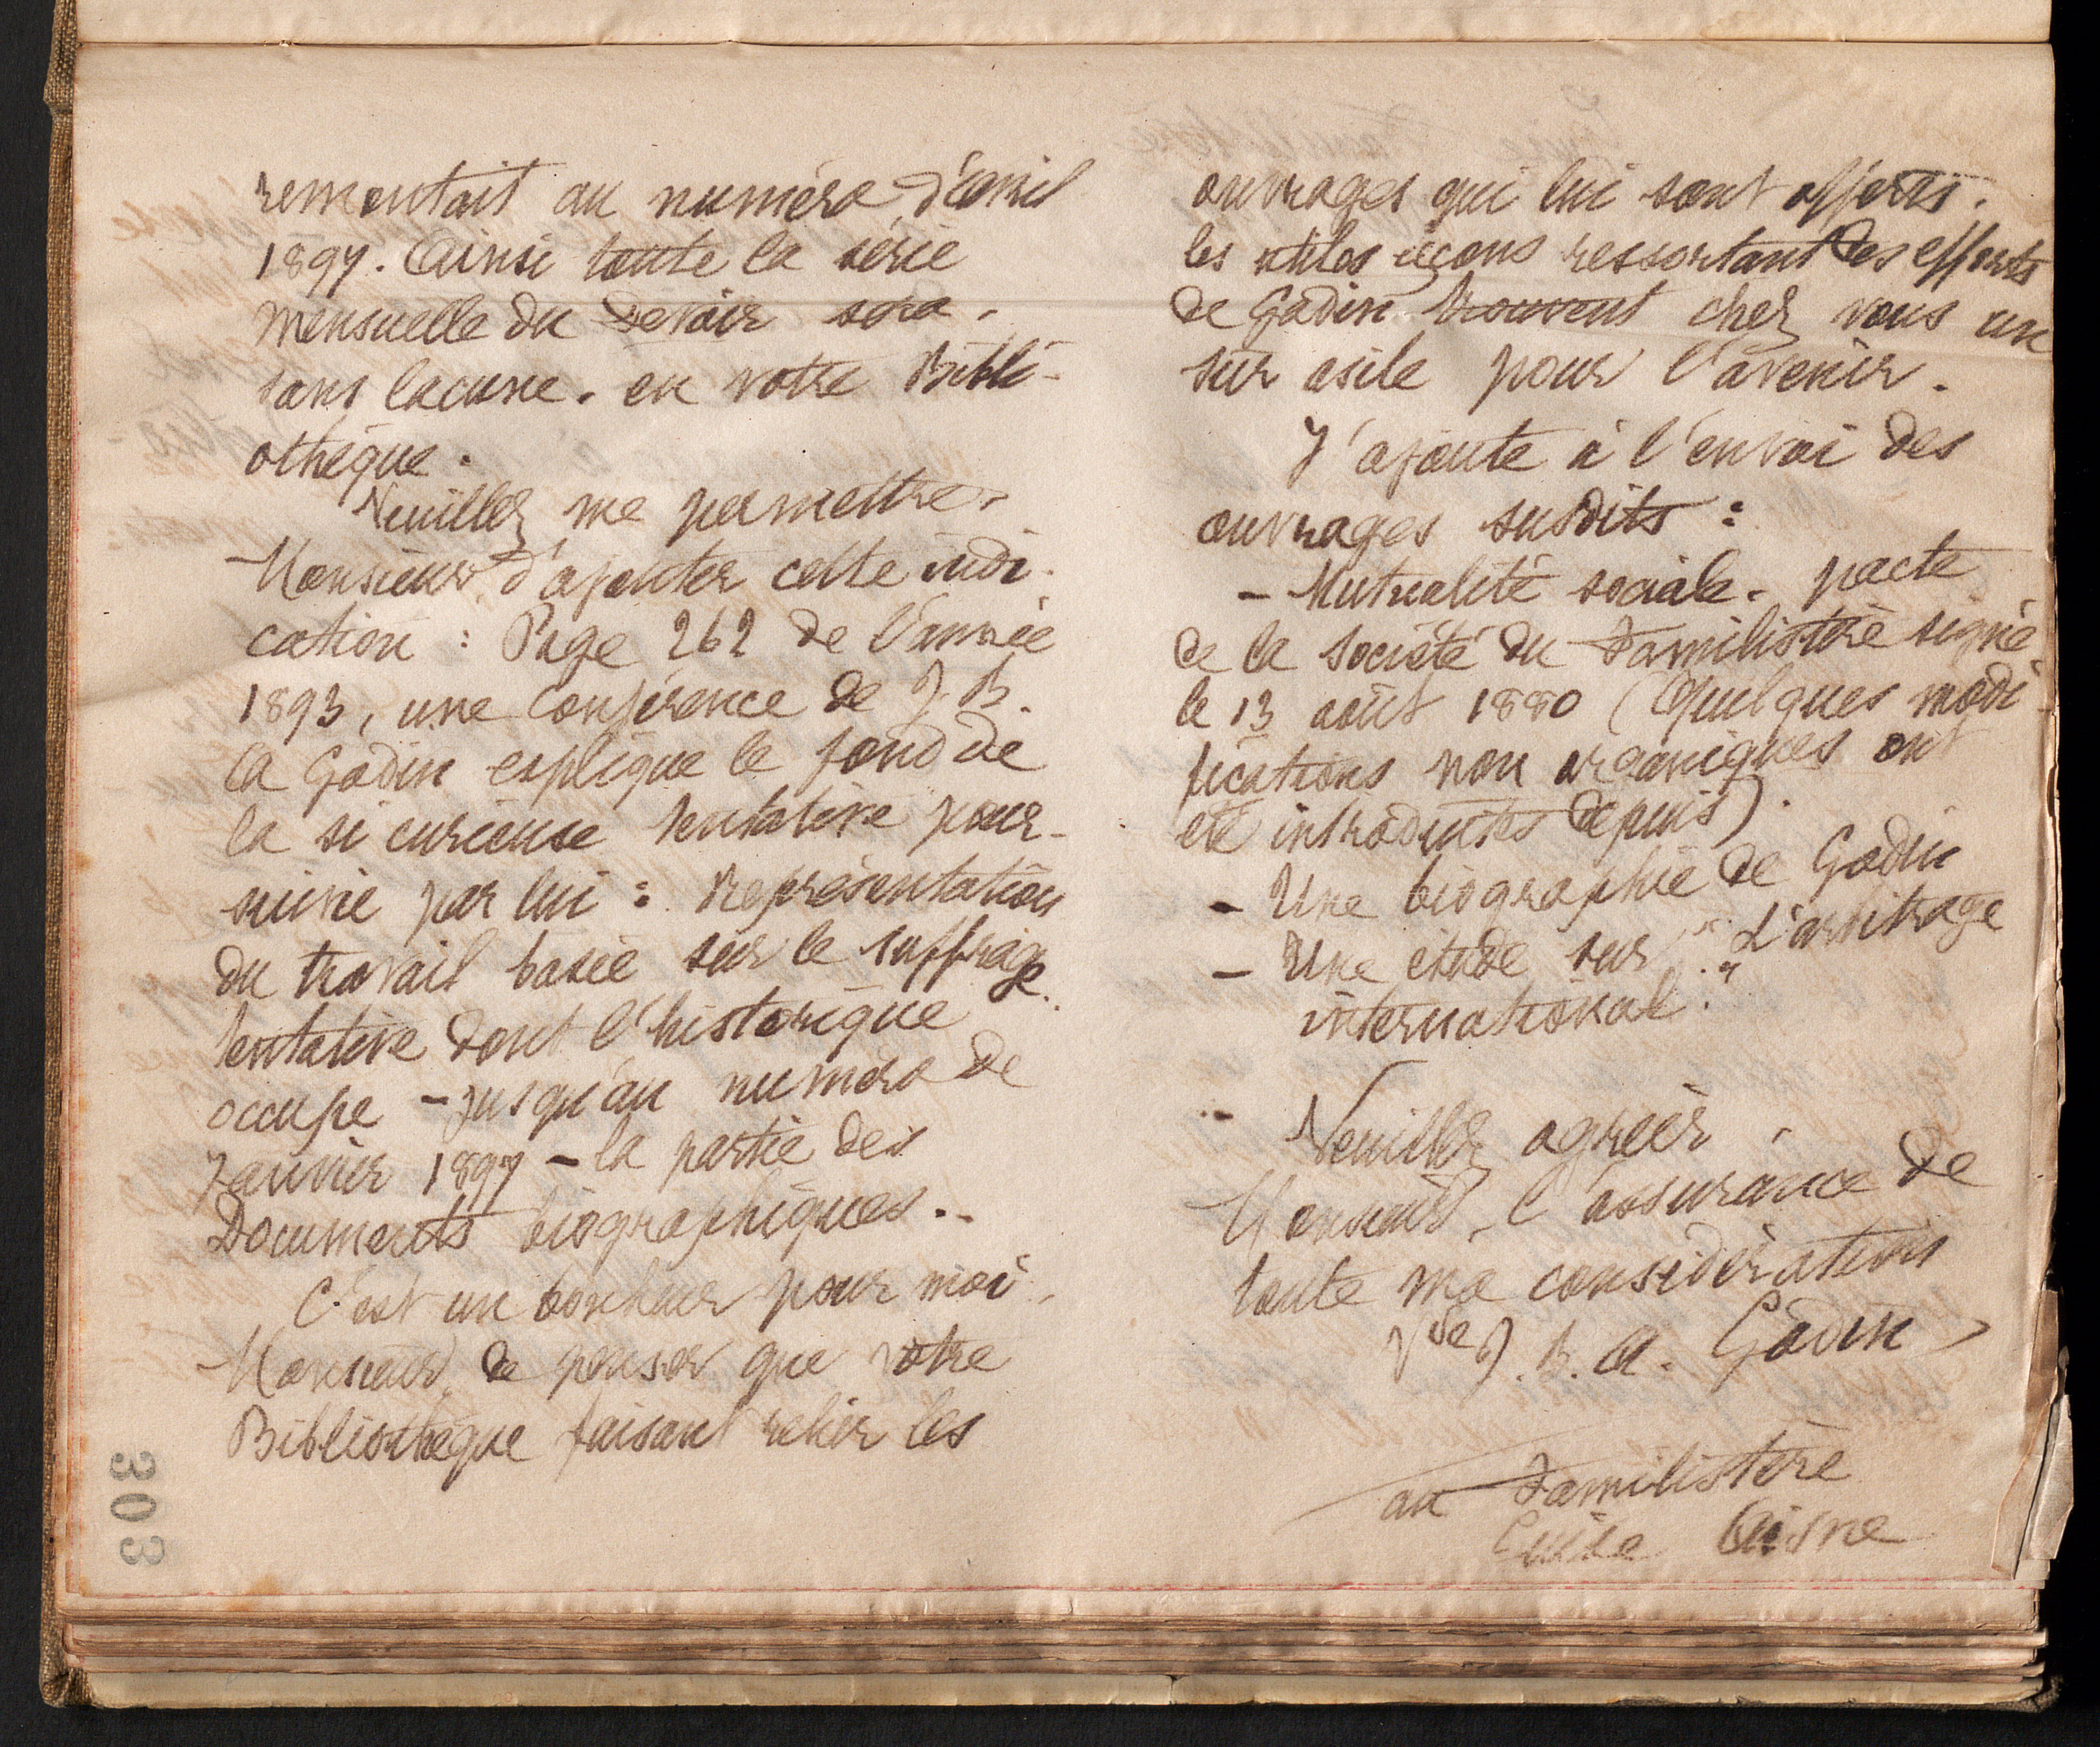 remontait au numéro d'avril
1897. Ainsi toute la série
mensuelle du Devoir sera,
sans lacune. en votre Bibli-
othèque.
Veuillez me permettre,
Monsieur, d'ajouter cette indi-
cation : Page 262 de l'année
1893, une conférence de J. B.
A Godin explique le fond de
la si curieuse tentative pour-
suivie par lui : Représentation
du travail basée sur le suffrage.
tentative dont l'historique
occupe - jusqu'au numéro de
Janvier 1897 - la partie des
Documents biographiques.
C'est un bonheur pour moi,
Monsieur, de penser que votre
Bibliothèque faisant relier les
303
ouvrages qui lui sont offerts,
les utiles leçons ressortant des efforts
de Godin trouvent chez vous un
sûr asile pour l'avenir.
J'ajoute à l'envoi des
ouvrages susdits :
- Mutualité sociale. pacte
de la Société du Familistère signé
le 13 août 1880 (Quelques modi-
fications non organiques ont
été introduites depuis).
- Une biographie de Godin
- Une étude sur "L'arbitrage
international."
Veuillez agréer
Monsieur, l'assurance de
toute ma considération
Vve J. B. A. Godin
au Familistère
Guise Aisne